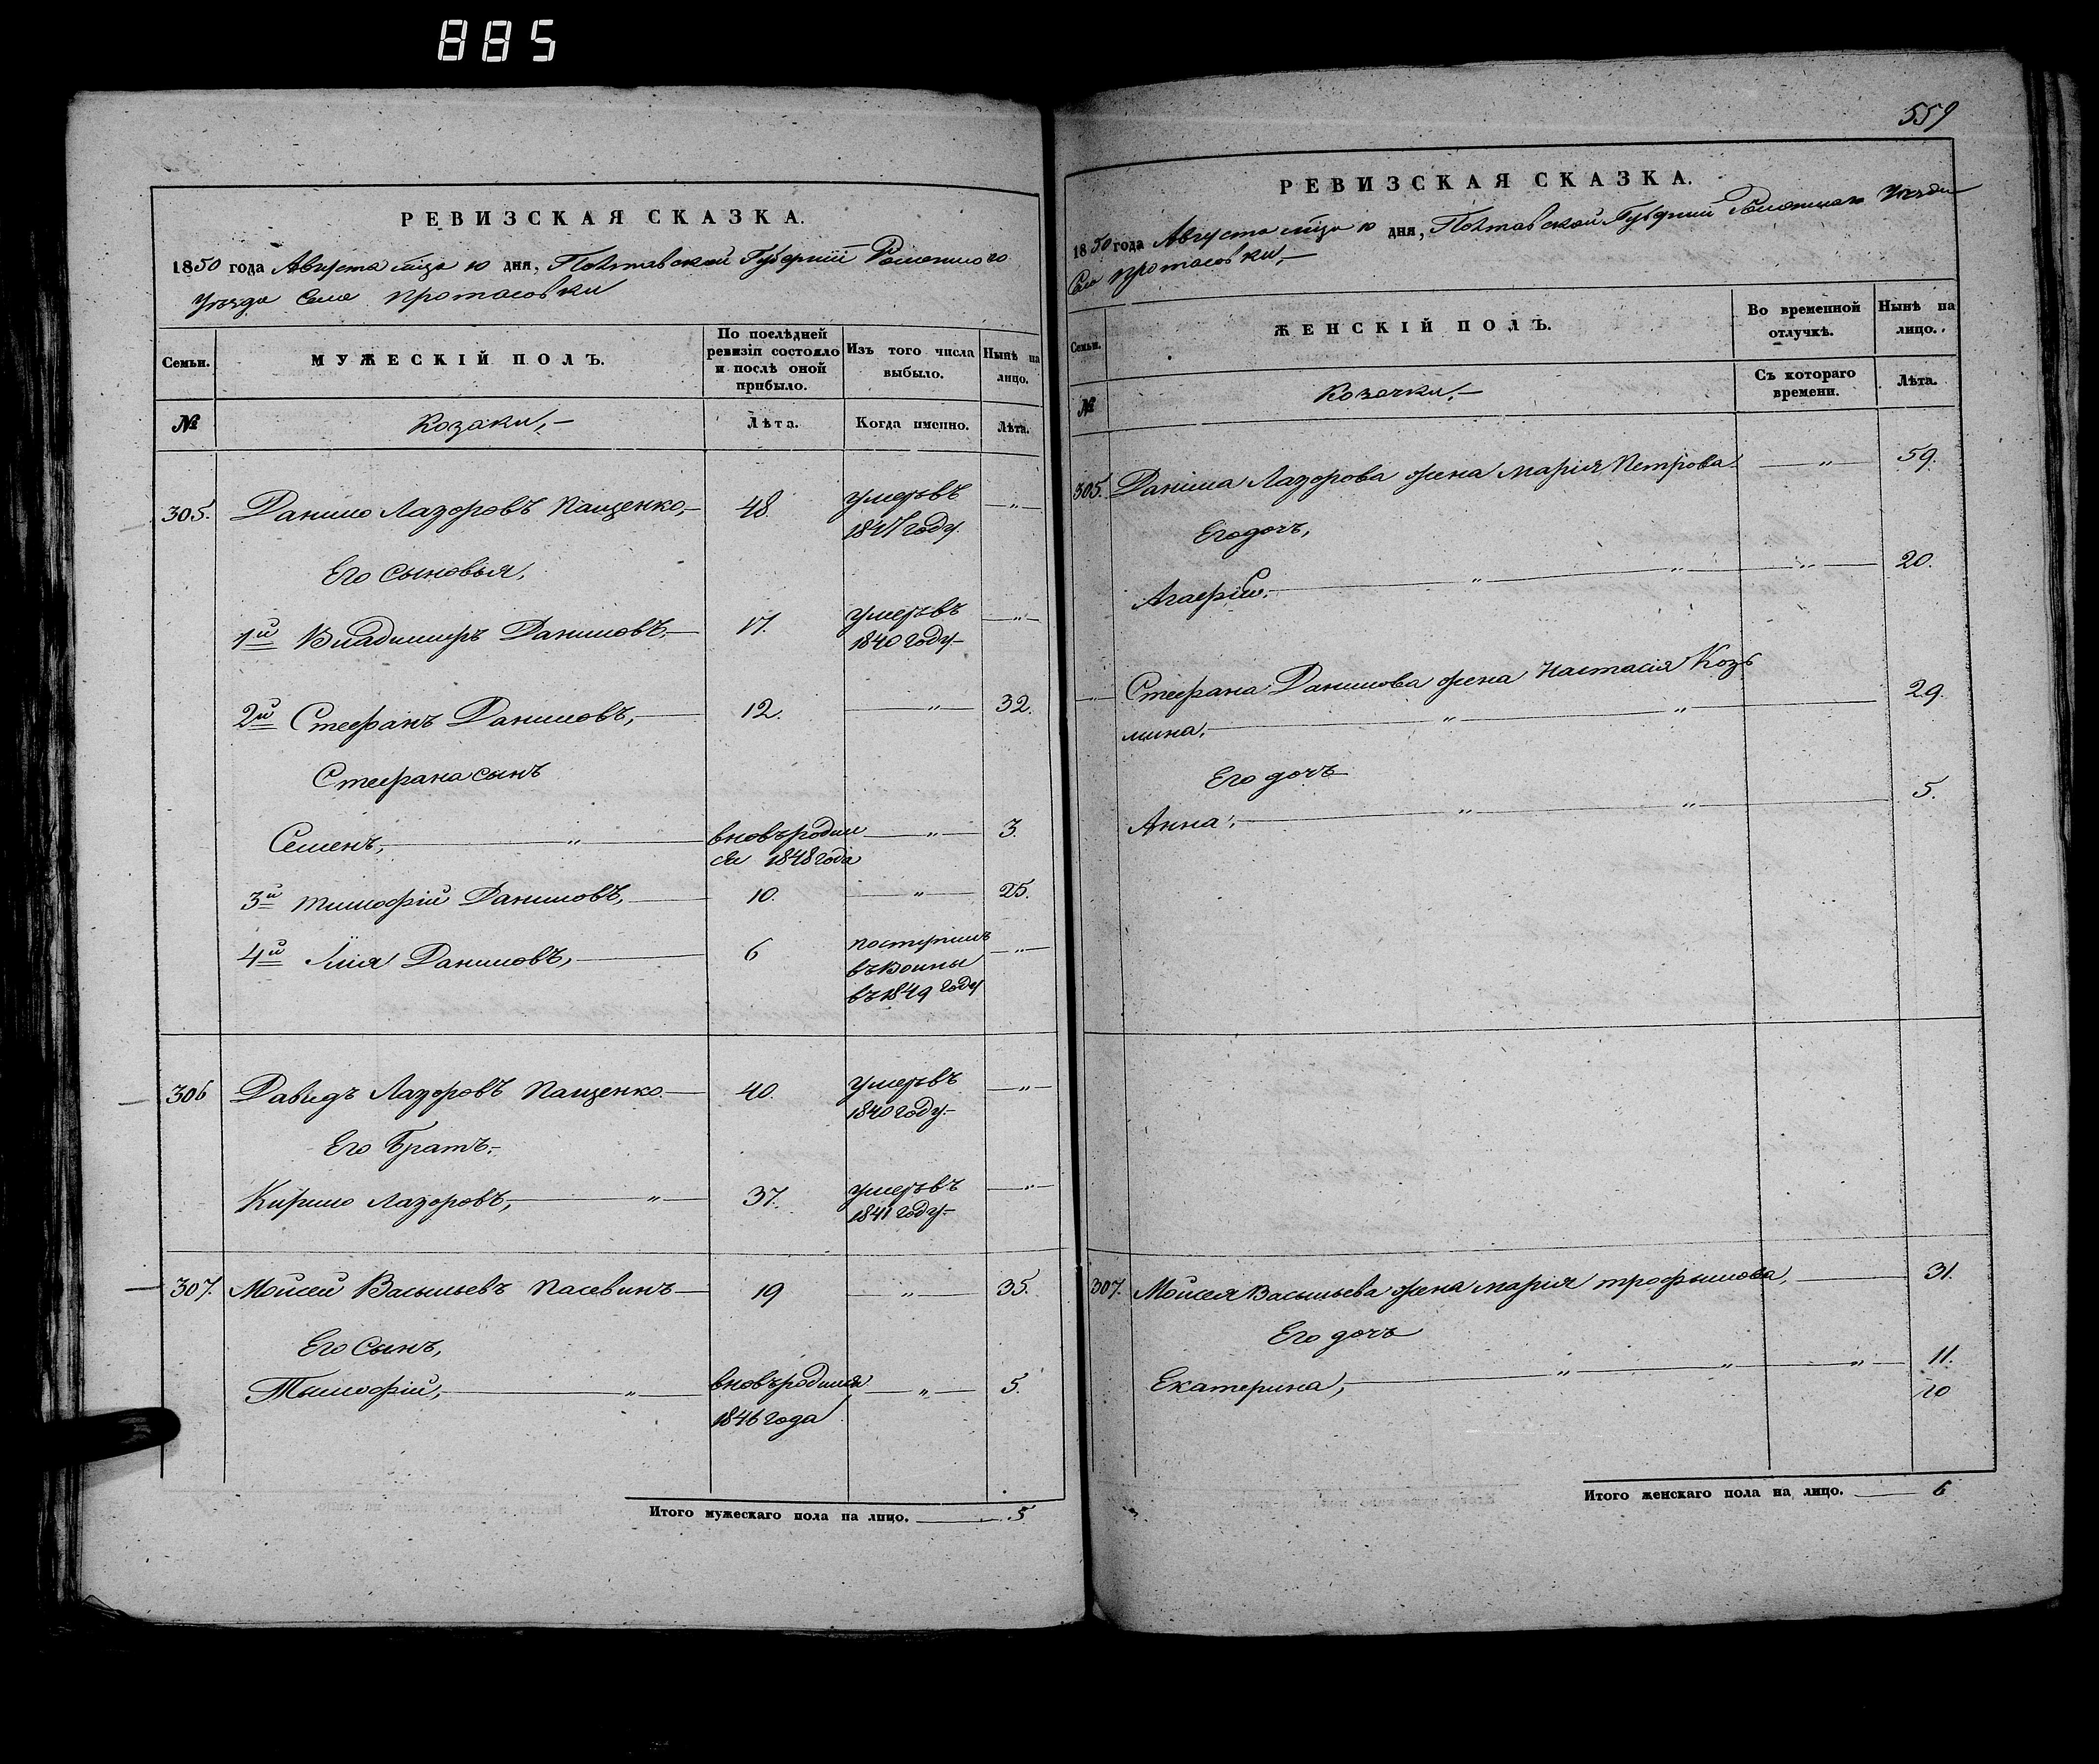 885
РЕВИЗСКАЯ СКАЗКА.
1850 года Августа мца 10 дня, Полтавской Губерніи Роменского
Уезда Села Протасовки
Семьи.
МУЖЕСКІЙ ПОЛЪ.
По послѣдней ревизіи состояло и послѣ оной прибыло.
Изъ того числа выбыло.
Нынѣ на лицо.
№
Козаки,
Лѣта.
Когда именно.
Лѣта.
305. Данило Лазоровъ Пащенко, 48. умеръ въ 1847 году. "
Его сыновья,
1й Владимиръ Даниловъ, 17. умеръ въ 1840 году "
2й Стефанъ Даниловъ, 12. " 32.
Стефана сынъ
Семенъ, " вновь родил
ся 1848 года " 3.
3й Тимофій Даниловъ, 10. " 25.
4й Илія Даниловъ, 6 поступилъ
въ воины
въ 1849 году "
306 Давидъ Лазоровъ Пащенко 40. умеръ въ
1840 году. "
Его Братъ
Кирило Лазоровъ, " 37. умеръ въ
1841 году "
307. Мойсей Васыльевъ Пасевинъ 19 " 35.
Его Сынъ,
Тымофій, " вновь родился
1846 года " 5.
Итого мужескаго пола на лицо. 5
559
РЕВИЗСКАЯ СКАЗКА.
1850 года Августа мца 10 дня, Полтавской Губерніи Роменского Уезда
Села Протасовки,
Семьи.
ЖЕНСКІЙ ПОЛЪ.
Во временной отлучкѣ.
Нынѣ на лицо.
№
Козачки,
Съ котораго времени.
Лѣта.
305. Данила Лазорова жена Марія Петрова " 59.
Его дочь,
Агафія. " " " 20.
Стефана Данилова жена Настасія Козь
мина, " " 29.
Его дочь
Анна, " " 5.
307. Мойсея Васыльева жена Марія Трофымова, 31.
Его дочь
Екатерина, " " " 11.
10
Итого женскаго пола на лицо. 6